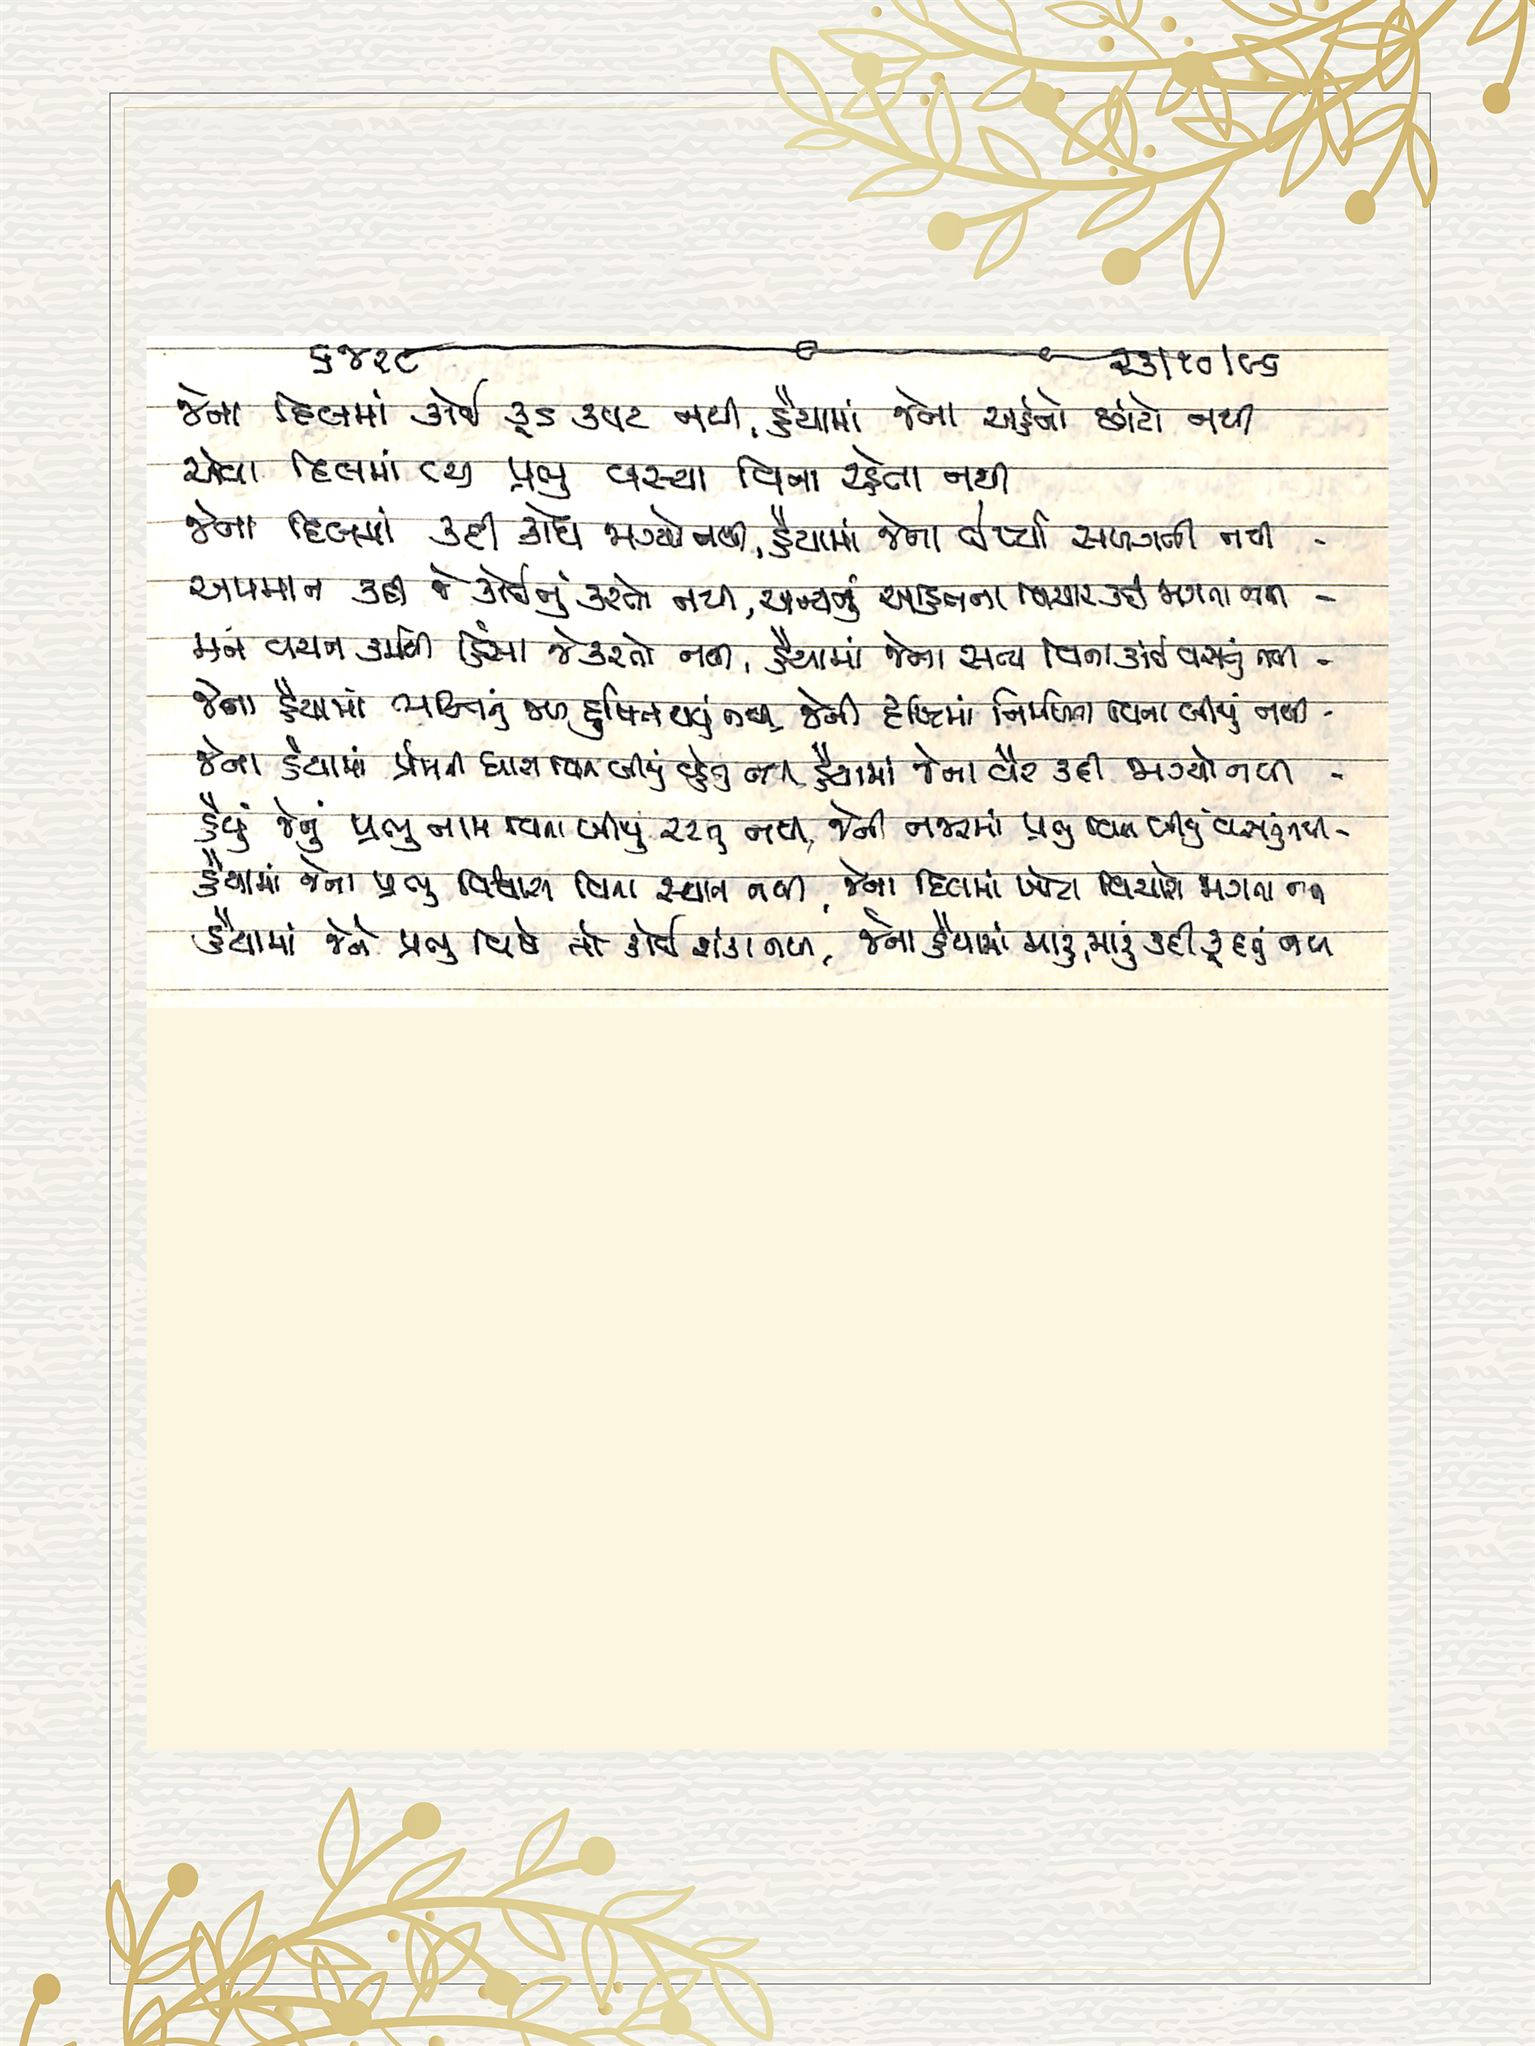 ૬૪૨૯ ૨૩/૧૦/૯૬
જેના દિલમાં કોઈ કૂડ કપટ નથી, હૈયામાં જેના અહંનો છાંટો નથી
એવા દિલમાં રે પ્રભુ વસ્યા વિના રહેતા નથી
જેના દિલમાં કદી ક્રોધ ભગ્યો નથી, હૈયામાં જેના ઈર્ષ્યા સળગતી નથી -
અપમાન કદી જે કોઈનું કરતો નથી, અન્યનું અહિતના વિચાર કદી જાગતા નથી -
મન વચન કર્મથી હિંસા જે કરતો નથી, હૈયામાં જેના સત્ય વિના કાંઈ વસતું નથી -
જેના હૈયામાં ભક્તિનું જળ દુષિત થયું નથી, જેની દૃષ્ટિમાં નિર્મળતા વિના બીજું નથી -
જેના હૈયામાં પ્રેમની ધારા વિના બીજું વહેતું નથી, હૈયામાં જેના વૈર કદી જાગ્યો નથી -
હૈયું જેનું પ્રભુ નામ વિના બીજું રટતું નથી, જેની નજરમાં પ્રભુ વિના બીજું વસતું નથી -
હૈયામાં જેના પ્રભુ વિશ્વાસ વિના સ્થાન નથી, જેના દિલમાં ખોટા વિચારો જાગતા નથી
હૈયામાં જેને પ્રભુ વિષે તો કોઈ શંકા નથી, જેના હૈયામાં મારું, મારું કદી કૂદતું નથી